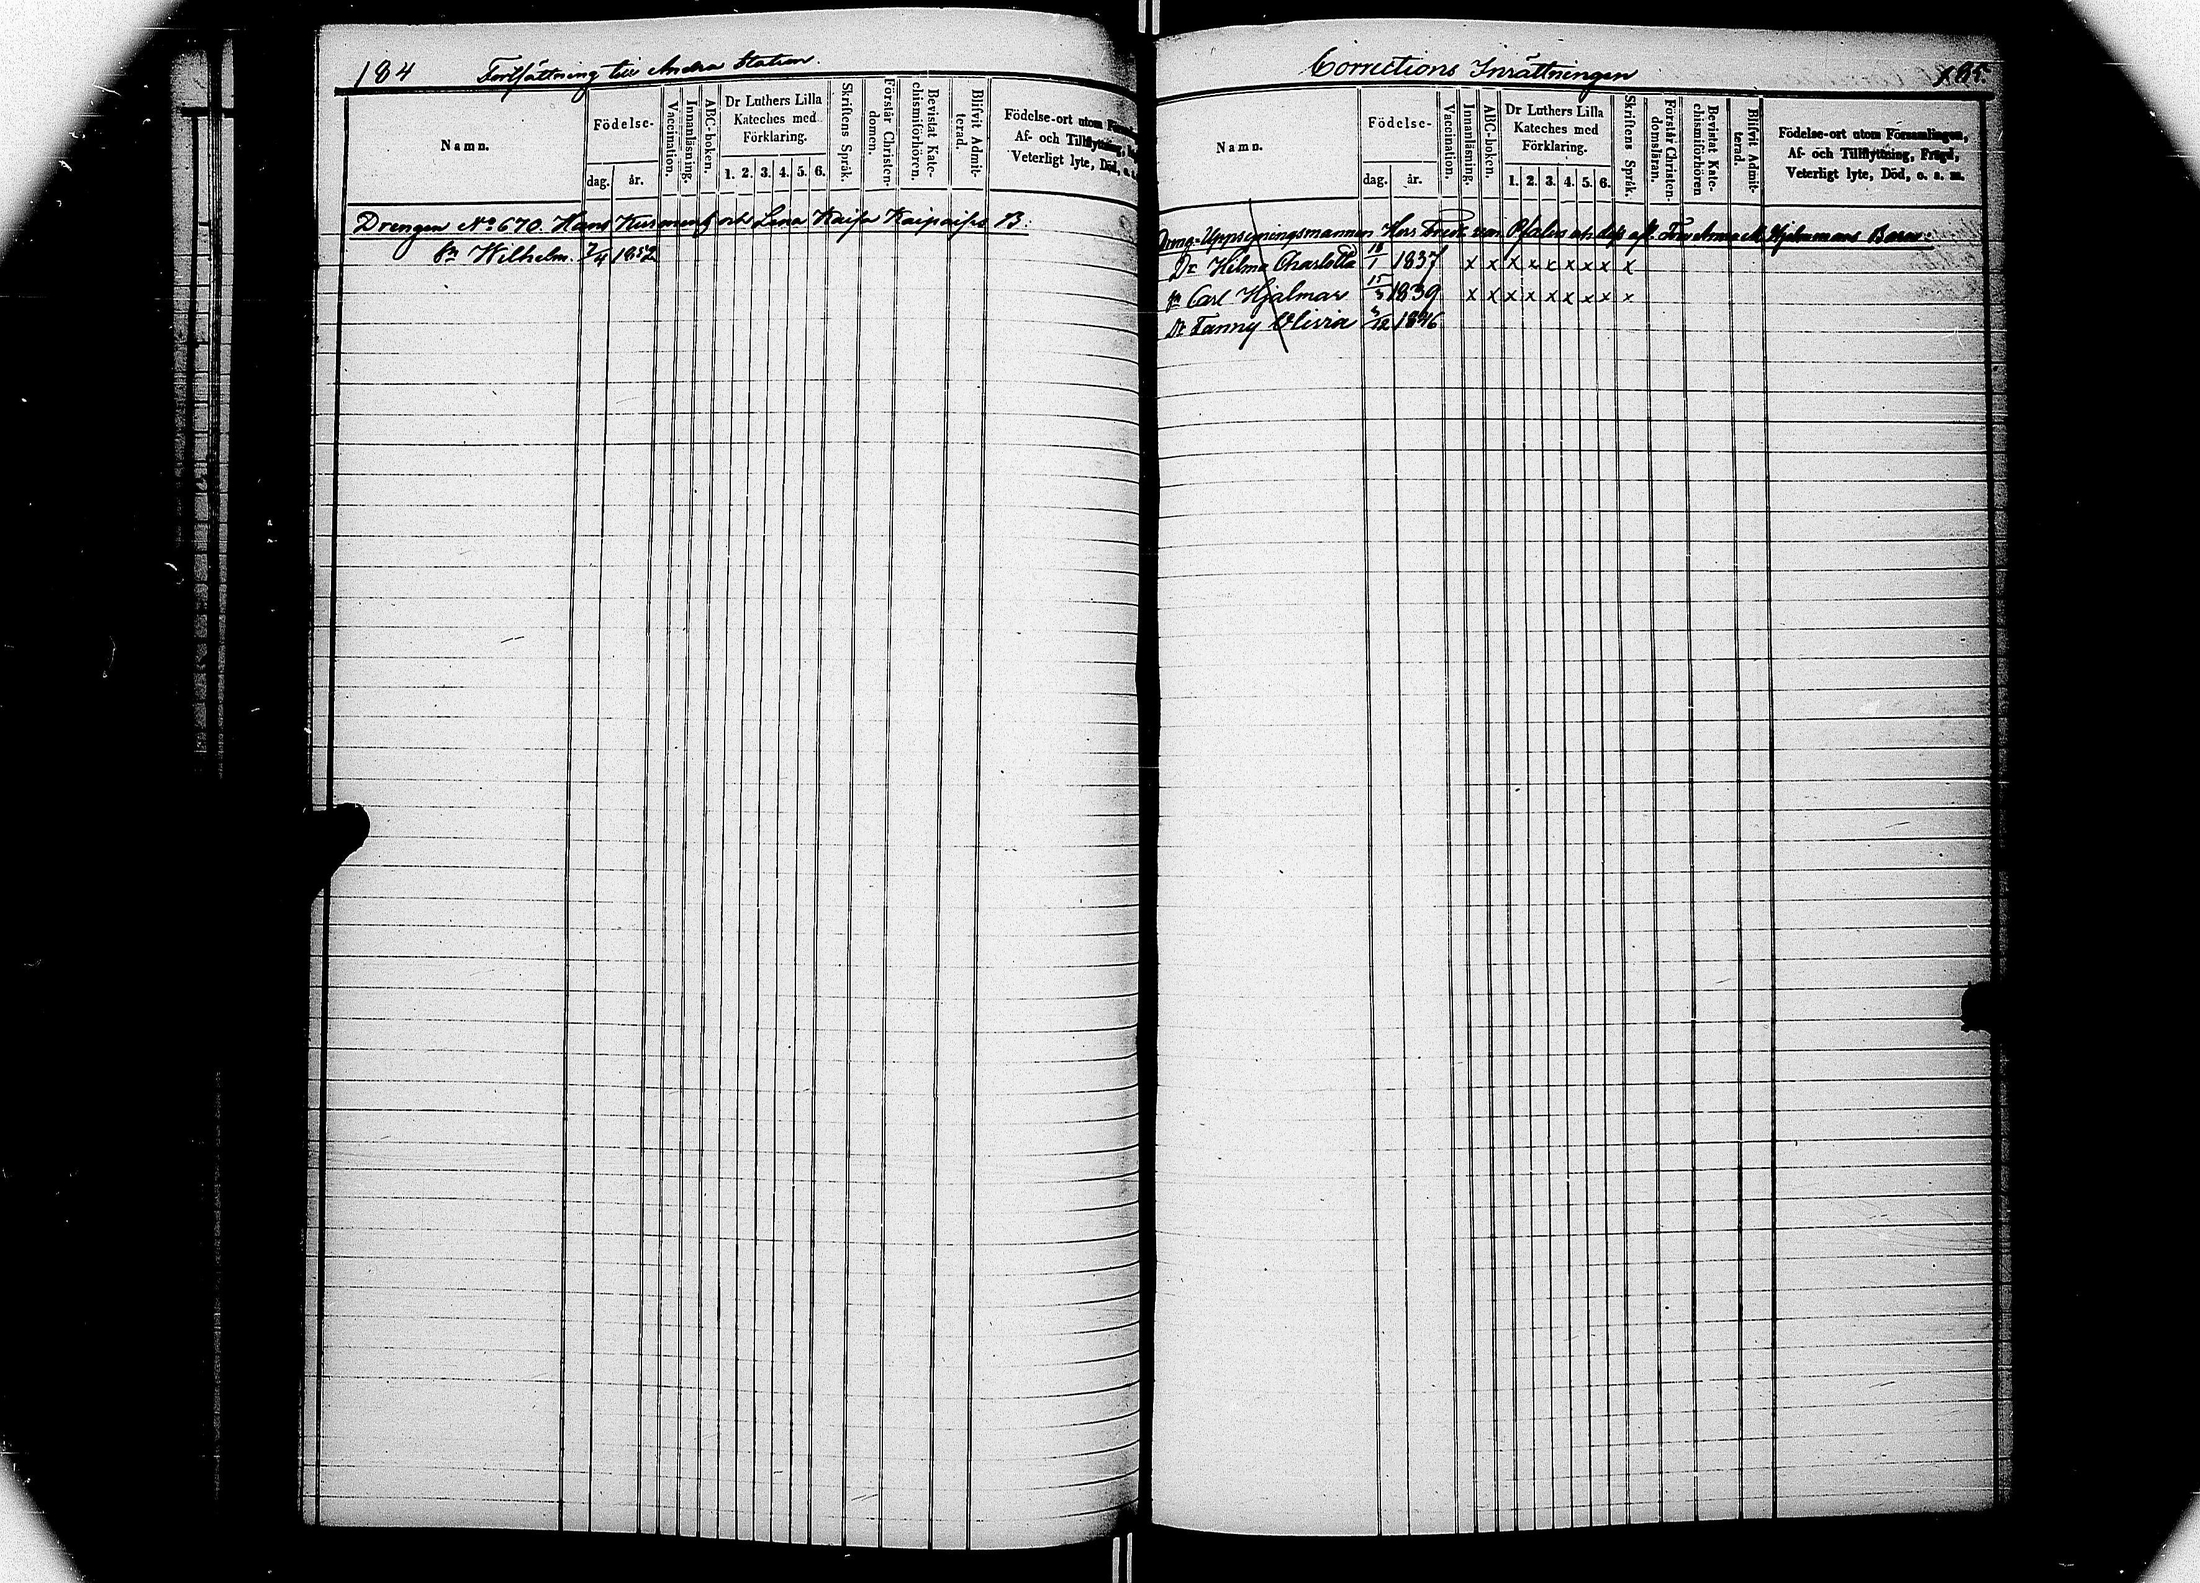 184 Fortsättning till Andra Station.
Namn.
Födelse-
dag. år.
Vaccination.
Innanläsning.
ABC-boken.
Dr Luthers Lilla
Kateches med
Förklaring.
1. 2. 3. 4. 5. 6.
Skriftens Språk.
Förstår Christen-
domen.
Bevistat Kate-
chismiförhören.
Blifvit Admit-
terad.
Födelse-ort utom
Af- och Tillflyttning,
Veterligt lyte, Död, o. s.
Drengen No 670. Hans och Lena Kaisa B:
Sn Wilhelm. 7/4 1852
Corrections Inrättningen 185
Namn.
Födelse-
dag. år.
Vaccination.
Innanläsning.
ABC-boken.
Dr Luthers Lilla
Kateches med
Förklaring.
1. 2. 3. 4. 5. 6.
Skriftens Språk.
Förstår Christen-
domsläran.
Bevistat Kate-
chismiförhören
Blifvit Admit-
terad.
Födelse-ort utom Församlingen,
Af- och Tillflyttning, Frägd,
Veterligt lyte, Död, o. s. m.
Uppsyningsmannen von Pfaler och dess afl. Fru Anna M. Hjelmmans Barn:
Dr Hilma Charlotta 18/1 1837 x x x x x x x x x
Sn Carl Hjalmar 15/3 1839 x x x x x x x x x
Dr Fanny Olivia 3/12 1846